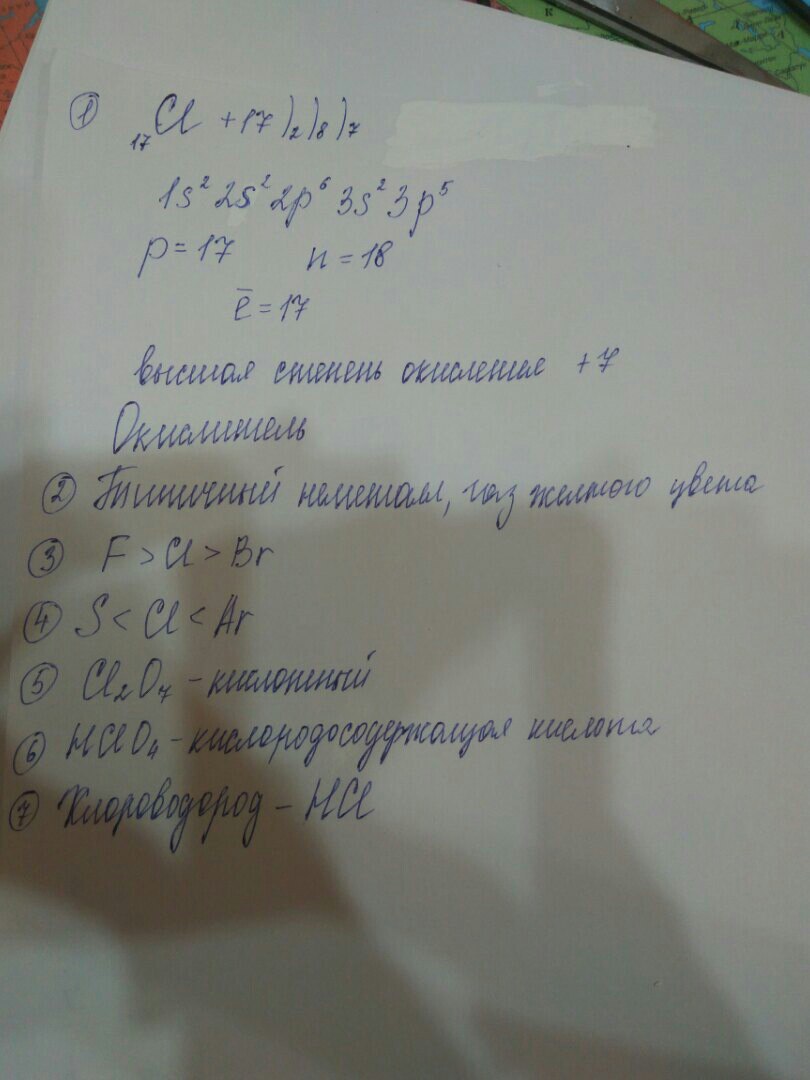 ① ₁₇Cl +17 )₂)₈)₇
1s² 2s² 2p⁶ 3s² 3p⁵
p = 17 n = 18
ē = 17
высшая степень окисления +7
Окислитель
② Типичный неметалл, газ желтого цвета
③ F > Cl > Br
④ S < Cl < Ar
⑤ Cl₂O₇ - кислотный
⑥ HClO₄ - кислородосодержащая кислота
⑦ Хлороводород - HCl